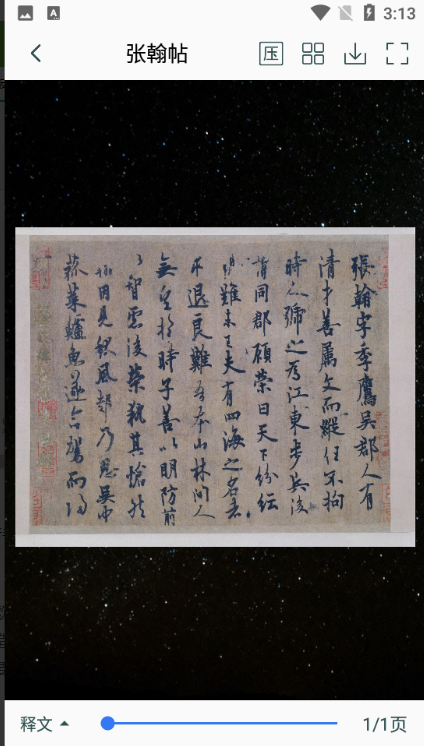 3:13
张翰帖
压
張翰字季鷹吳郡人有
清才善屬文而縱任不拘
時人號之為江東步兵後
謂同郡顧榮曰天下紛紜
禍難未已夫有四海之名者
求退良難吾本山林間人
無望於時子善以明防前
以智慮後榮執其愴然
翰因見秋風起乃思吳中
菰菜鱸魚遂命駕而歸
释文
1/1页